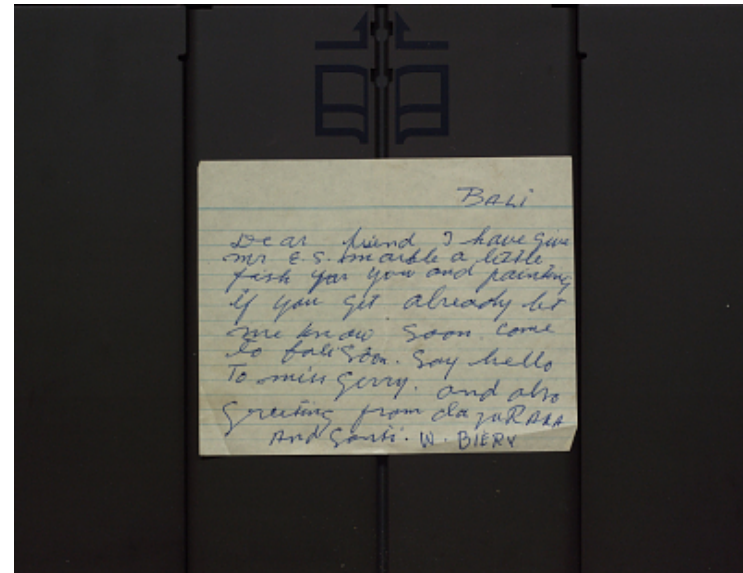 BALI
Dear friend I have give
mr E.S. marble a little
fish for you and painting
if you get already let
me know soon. come
to bali soon. Say hello
To miss Gerry. and also
Greeting from da yu RAKA
And Santi. W. BIERY